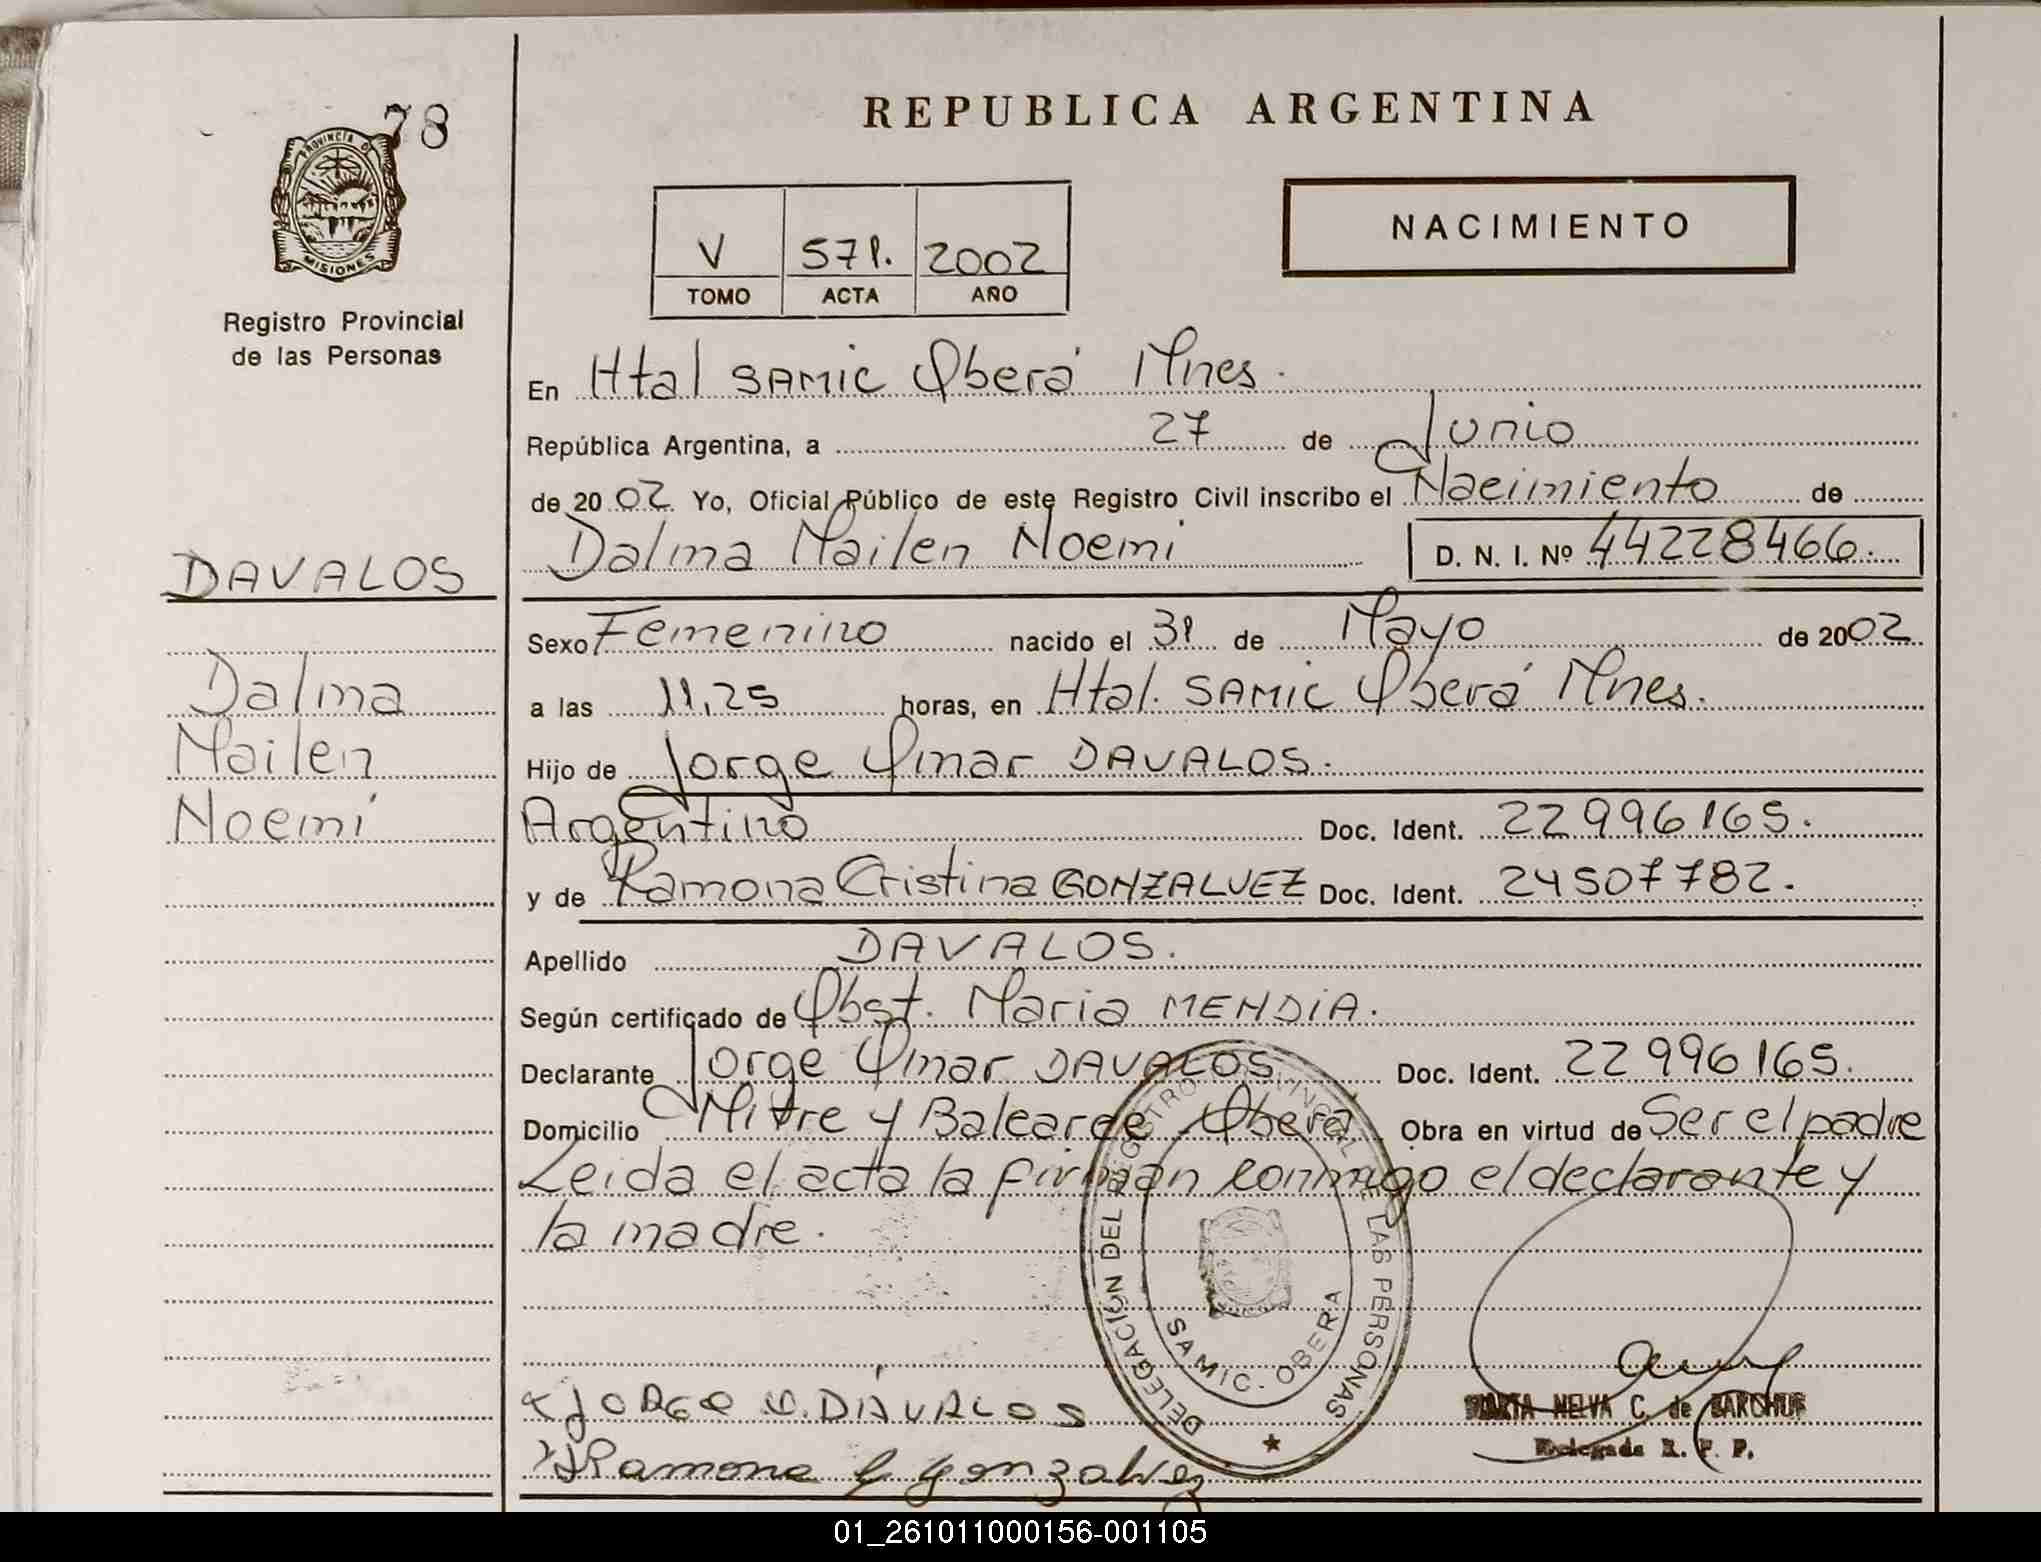 78
PROVINCIA DE
MISIONES
Registro Provincial
de las Personas
DAVALOS
Dalma
Mailen
Noemí
REPUBLICA ARGENTINA
NACIMIENTO
V 571. 2002
TOMO ACTA AÑO
En Htal SAMIC Oberá Mnes.
República Argentina, a 27 de Junio
de 2002 Yo, Oficial Público de este Registro Civil inscribo el Nacimiento de
Dalma Mailen Noemi D. N. I. Nº 44228466.
Sexo Femenino nacido el 31 de Mayo de 2002
a las 11,25 horas, en Htal. SAMIC Oberá Mnes.
Hijo de Jorge Omar DAVALOS.
Argentino Doc. Ident. 22996165.
y de Ramona Cristina GONZALVEZ Doc. Ident. 24507782.
Apellido DAVALOS.
Según certificado de Obst. Maria MENDIA.
Declarante Jorge Omar DAVALOS Doc. Ident. 22996165.
Domicilio Mitre y Balearce Oberá Obra en virtud de Ser el padre
Leida el acta la firman conmigo el declarante y
la madre.
DELEGACIÓN DEL REGISTRO PROVINCIAL DE LAS PERSONAS
SAMIC - OBERA
JORGE O. DÁVALOS
Ramona C Gonzalvez
MARTA NELVA C. de BARCHUF
Delegada R. P. P.
01_261011000156-001105